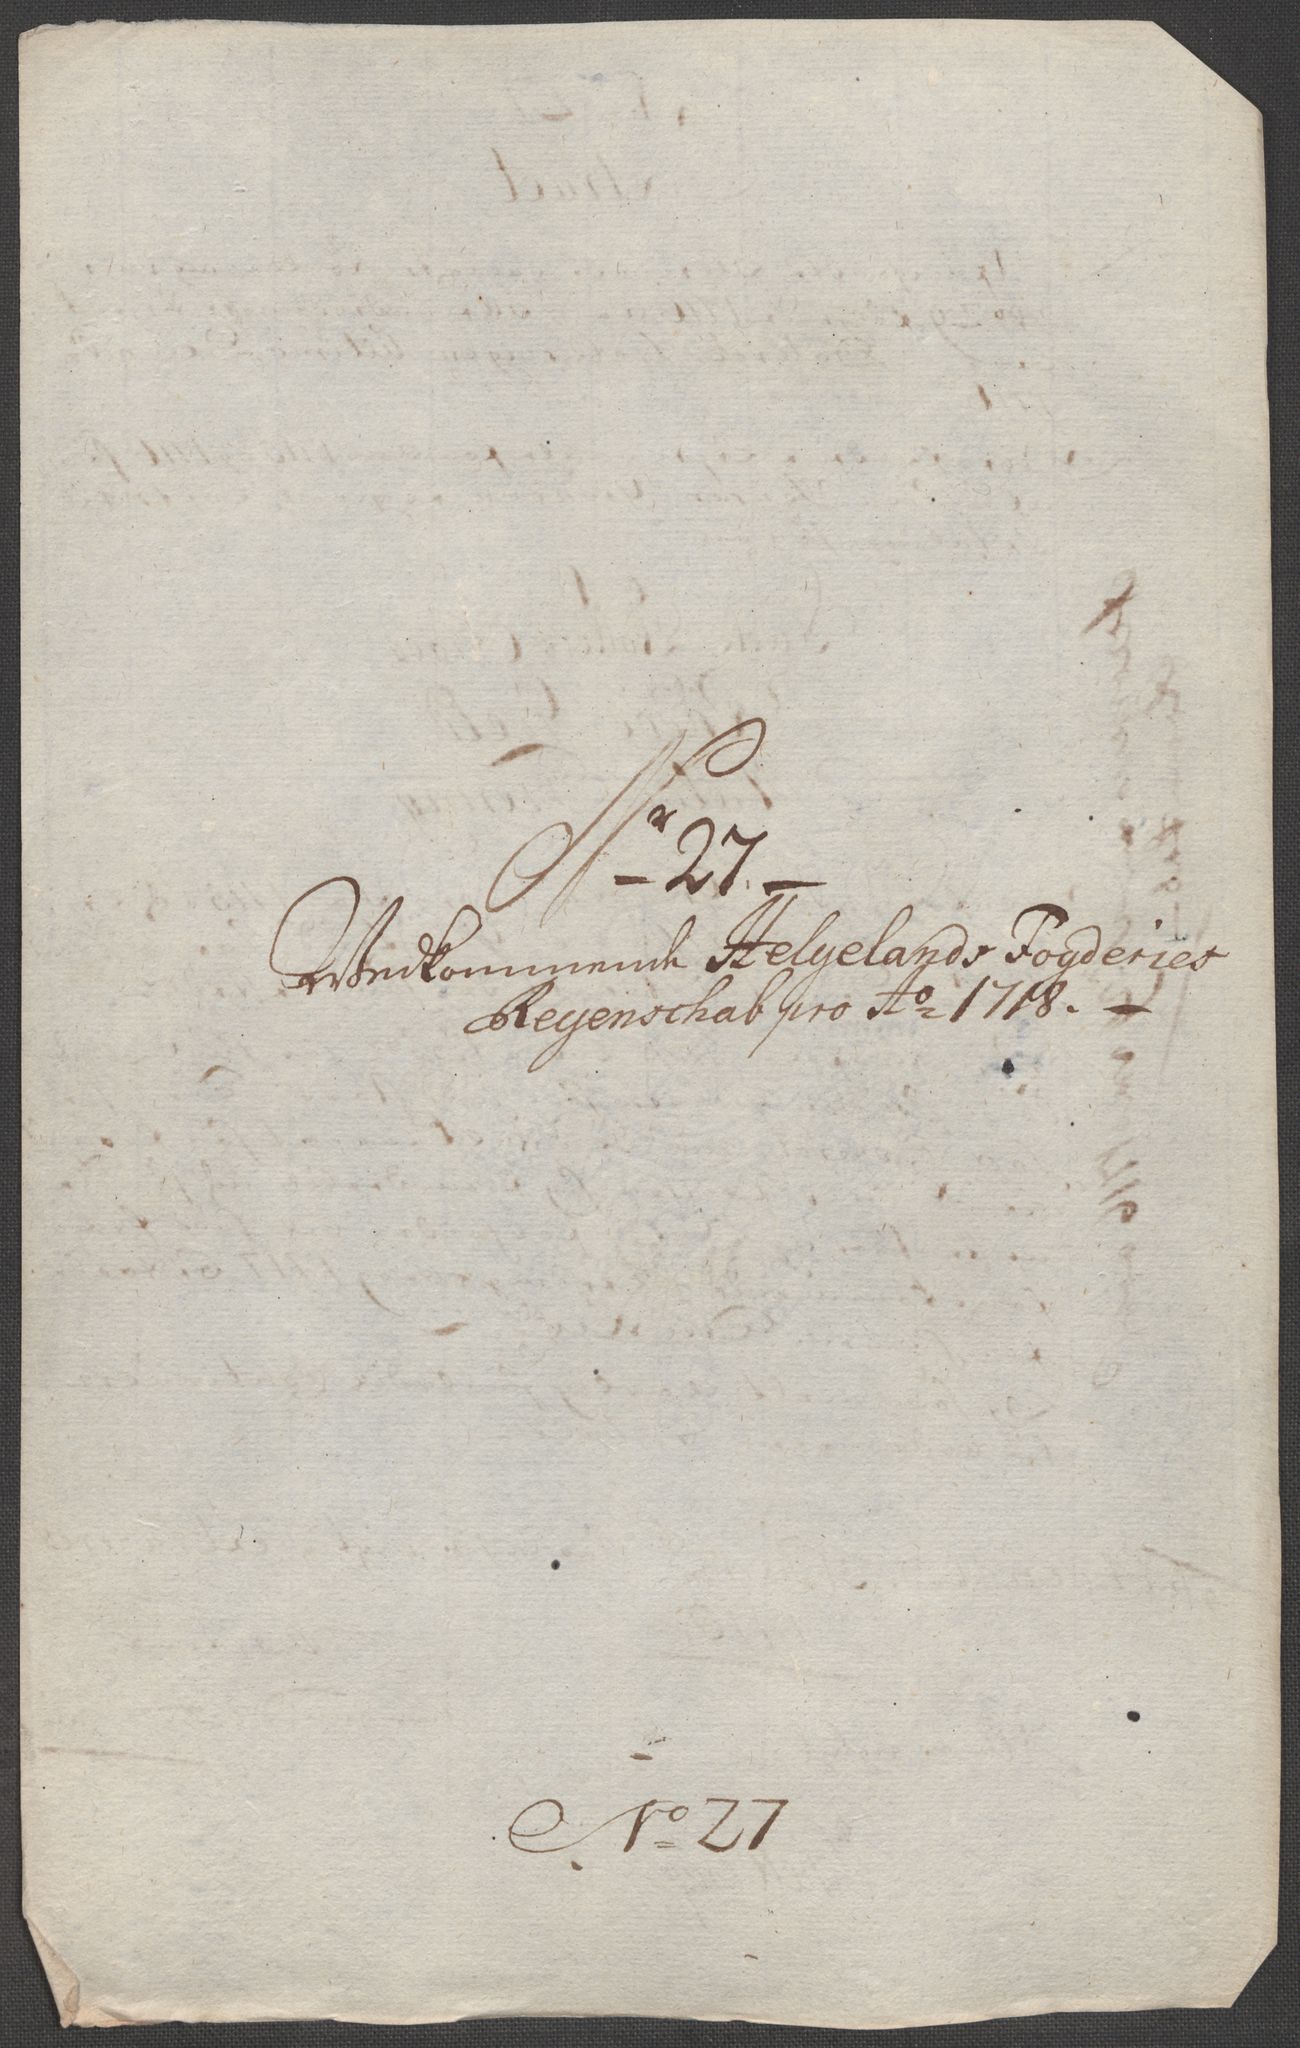 Nr 27.
Wedkommende Helgelands Fogderies
Regenschab pro Ao 1718.
No 27